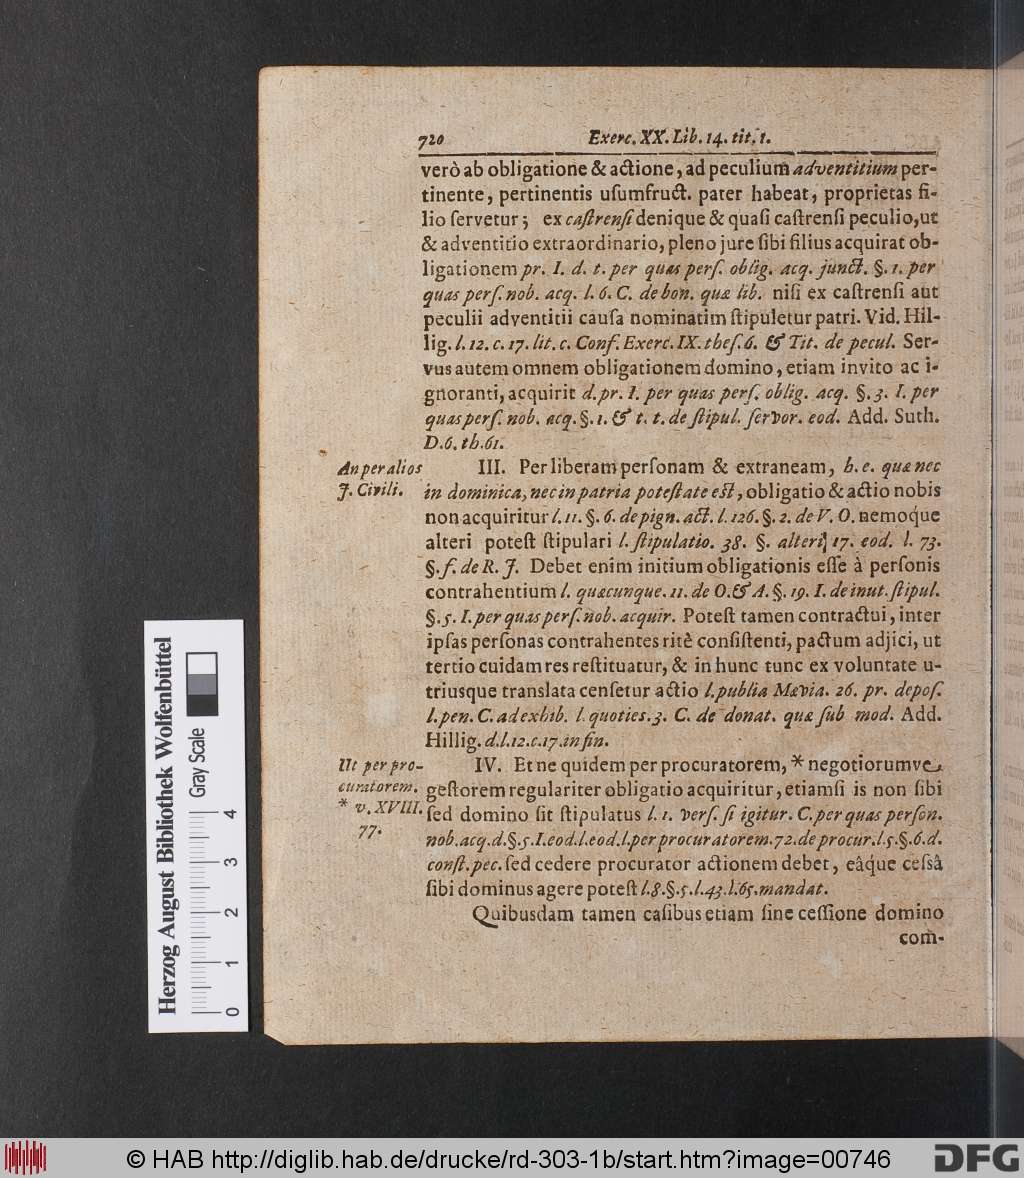 720 Exerc. XX. Lib. 14. tit. 1.
verò ab obligatione & actione, ad peculium adventitium per-
tinente, pertinentis uſumfruct. pater habeat, proprietas fi-
lio ſervetur; ex caſtrenſi denique & quaſi caſtrenſi peculio, ut
& adventitio extraordinario, pleno jure ſibi filius acquirat ob-
ligationem pr. I. d. t. per quas perſ. oblig. acq. junct. §. 1. per
quas perſ. nob. acq. l. 6. C. de bon. quæ lib. niſi ex caſtrenſi aut
peculii adventitii cauſa nominatim ſtipuletur patri. Vid. Hil-
lig. l. 12. c. 17. lit. c. Conf. Exerc. IX. theſ. 6. & Tit. de pecul. Ser-
vus autem omnem obligationem domino, etiam invito ac i-
gnoranti, acquirit d. pr. I. per quas perſ. oblig. acq. §. 3. I. per
quas perſ. nob. acq. §. 1. & t. t. de ſtipul. ſervor. eod. Add. Suth.
D. 6. th. 61.
An per alios
J. Civili.
III. Per liberam perſonam & extraneam, h. e. quæ nec
in dominica, nec in patria poteſtate eſt, obligatio & actio nobis
non acquiritur l. 11. §. 6. de pign. act. l. 126. §. 2. de V. O. nemoq́ue
alteri poteſt ſtipulari l. ſtipulatio. 38. §. alteri 17. eod. l. 73.
§. f. de R. J. Debet enim initium obligationis eſſe à perſonis
contrahentium l. quæcunque. 11. de O. & A. §. 19. I. de inut. ſtipul.
§. 5. I. per quas perſ. nob. acquir. Poteſt tamen contractui, inter
ipſas perſonas contrahentes ritè conſiſtenti, pactum adjici, ut
tertio cuidam res reſtituatur, & in hunc tunc ex voluntate u-
triusque translata cenſetur actio l. publia Mævia. 26. pr. depoſ.
l. pen. C. ad exhib. l. quoties. 3. C. de donat. quæ ſub mod. Add.
Hillig. d. l. 12. c. 17. in fin.
Ut per pro-
curatorem.
* v. XVIII.
77.
IV. Et ne quidem per procuratorem, * negotiorumve
geſtorem regulariter obligatio acquiritur, etiamſi is non ſibi
ſed domino ſit ſtipulatus l. 1. verſ. ſi igitur. C. per quas perſon.
nob. acq. d. §. 5. I. eod. l. eod. l. per procuratorem. 72. de procur. l. 5. §. 6. d.
conſt. pec. ſed cedere procurator actionem debet, eâque ceſsâ
ſibi dominus agere poteſt l. 8. §. 5. l. 43. l. 65. mandat.
Quibusdam tamen caſibus etiam ſine ceſſione domino
com-
Herzog August Bibliothek Wolfenbüttel
Gray Scale
0 1 2 3 4
© HAB http://diglib.hab.de/drucke/rd-303-1b/start.htm?image=00746
DFG